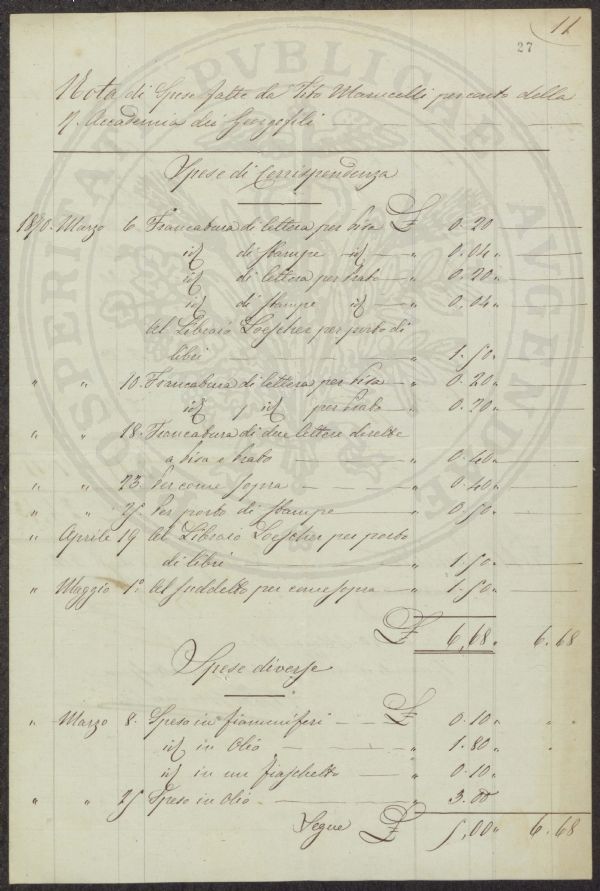 11
27
Nota di Spese fatte da Tito Marucelli per conto della
R. Accademia dei Georgofili
Spese di Corrispendenza
1870. Marzo 6 Francatura di lettera per Pisa £ 0.20
id di Stampe id " 0.04 "
id di lettera per Prato " 0.20 "
id di Stampe id " 0.04 "
Al Libraio Loescher per porto di
libri " 1.50 "
" " 10. Francatura di lettera per Pisa " 0.20 "
id id per Prato " 0.20 "
" " 18. Francatura di due lettere dirette
a Pisa e Prato " 0.40 "
" " 23. Per come sopra " 0.40 "
" " 25. Per porto di Stampe " 0.50 "
" Aprile 19 Al Libraio Loescher per porto
di libri " 1.50 "
" Maggio 1º. Al suddetto per come sopra " 1.50 "
£ 6,68 " 6.68
Spese diverse
" Marzo 8. Spesa in fiammiferi £ 0.10 " " "
id in Olio " 1.80 " "
id in un fiaschetto " 0.10 "
" " 25 Spesa in Olio " 3.00
Segue £ 5,00 " 6.68
PROSPERITATI PUBLICAE AUGENDAE